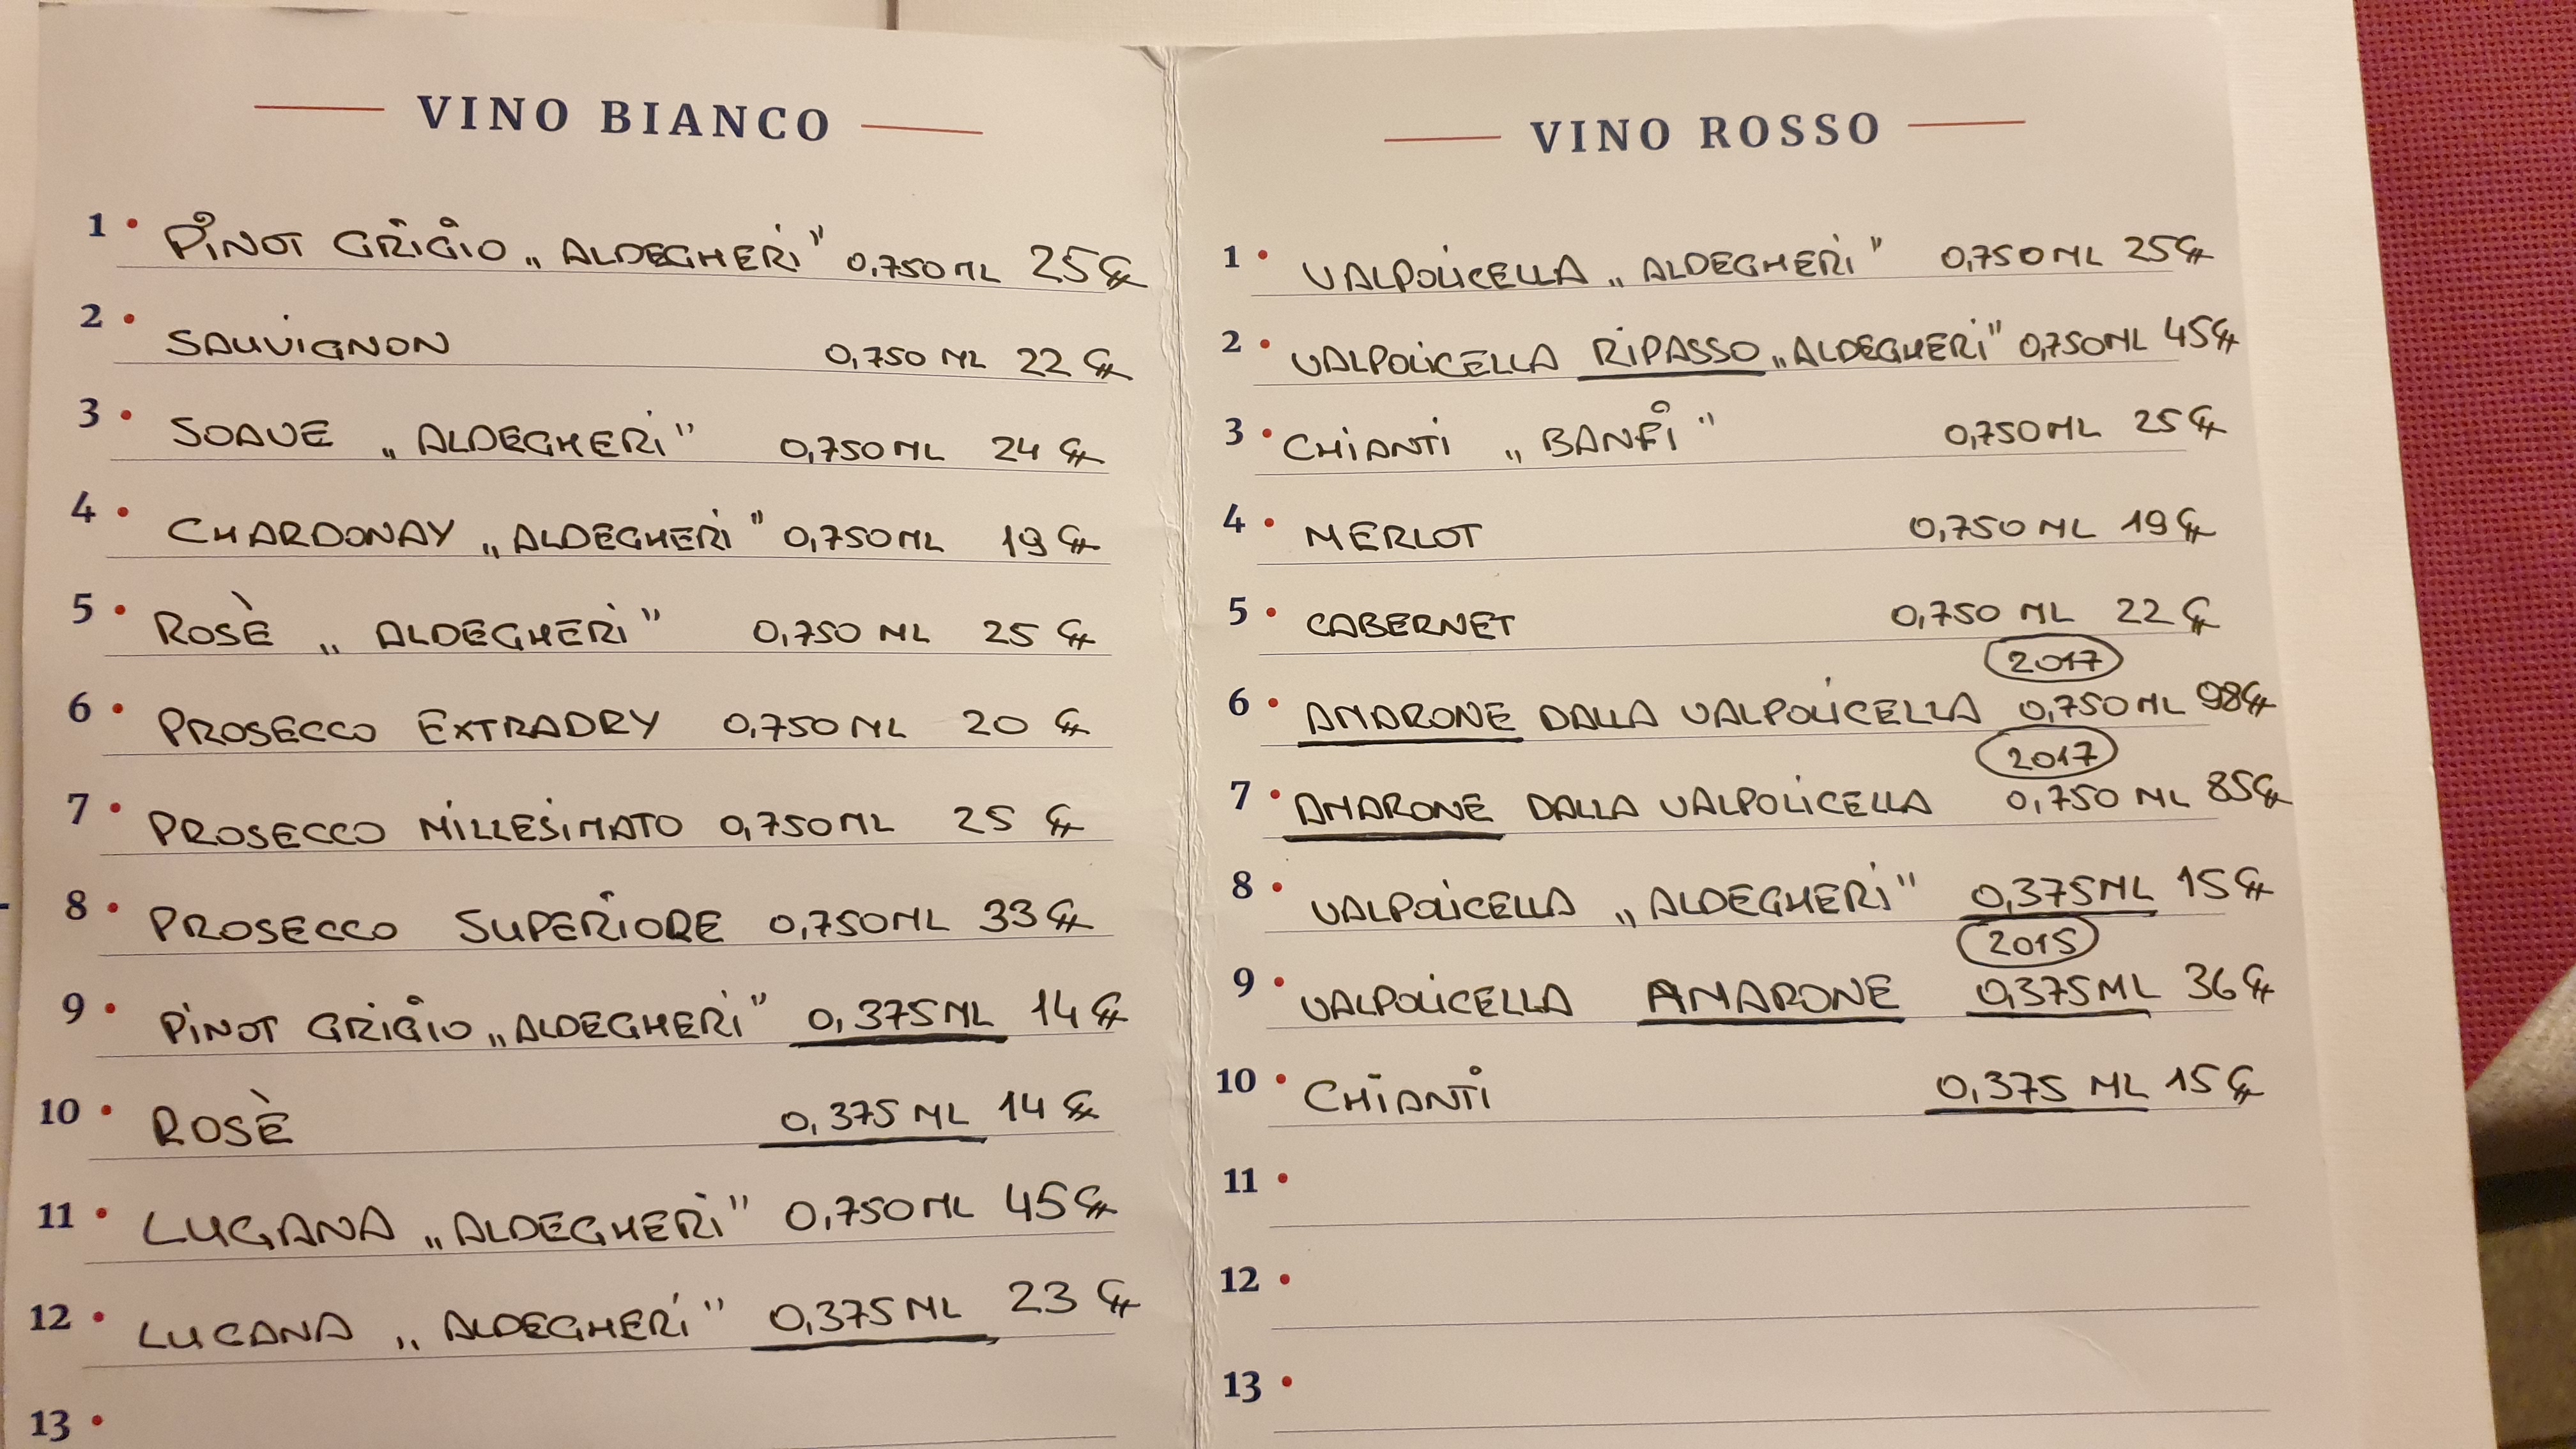 VINO BIANCO
1 • PINOT GRIGIO „ALDEGHERI" 0,750ML 25€
2 • SAUVIGNON 0,750 ML 22 €
3 • SOAVE „ALDEGHERI" 0,750ML 24 €
4 • CHARDONAY „ALDEGHERI" 0,750ML 19 €
5 • ROSÈ „ALDEGHERI" 0,750 ML 25 €
6 • PROSECCO EXTRADRY 0,750ML 20 €
7 • PROSECCO MILLESIMATO 0,750ML 25 €
8 • PROSECCO SUPERIORE 0,750ML 33 €
9 • PINOT GRIGIO „ALDEGHERI" 0,375ML 14 €
10 • ROSÈ 0,375 ML 14 €
11 • LUGANA „ALDEGHERI" 0,750ML 45 €
12 • LUGANA „ALDEGHERI" 0,375ML 23 €
13 •
VINO ROSSO
1 • VALPOLICELLA „ALDEGHERI" 0,750ML 25€
2 • VALPOLICELLA RIPASSO „ALDEGHERI" 0,750ML 45€
3 • CHIANTI „BANFI" 0,750ML 25 €
4 • MERLOT 0,750 ML 19€
5 • CABERNET 0,750 ML 22 €
2017
6 • AMARONE DALLA VALPOLICELLA 0,750ML 98€
2017
7 • AMARONE DALLA VALPOLICELLA 0,750 ML 85€
8 • VALPOLICELLA „ALDEGHERI" 0,375ML 15€
2015
9 • VALPOLICELLA AMARONE 0,375ML 36€
10 • CHIANTI 0,375 ML 15€
11 •
12 •
13 •